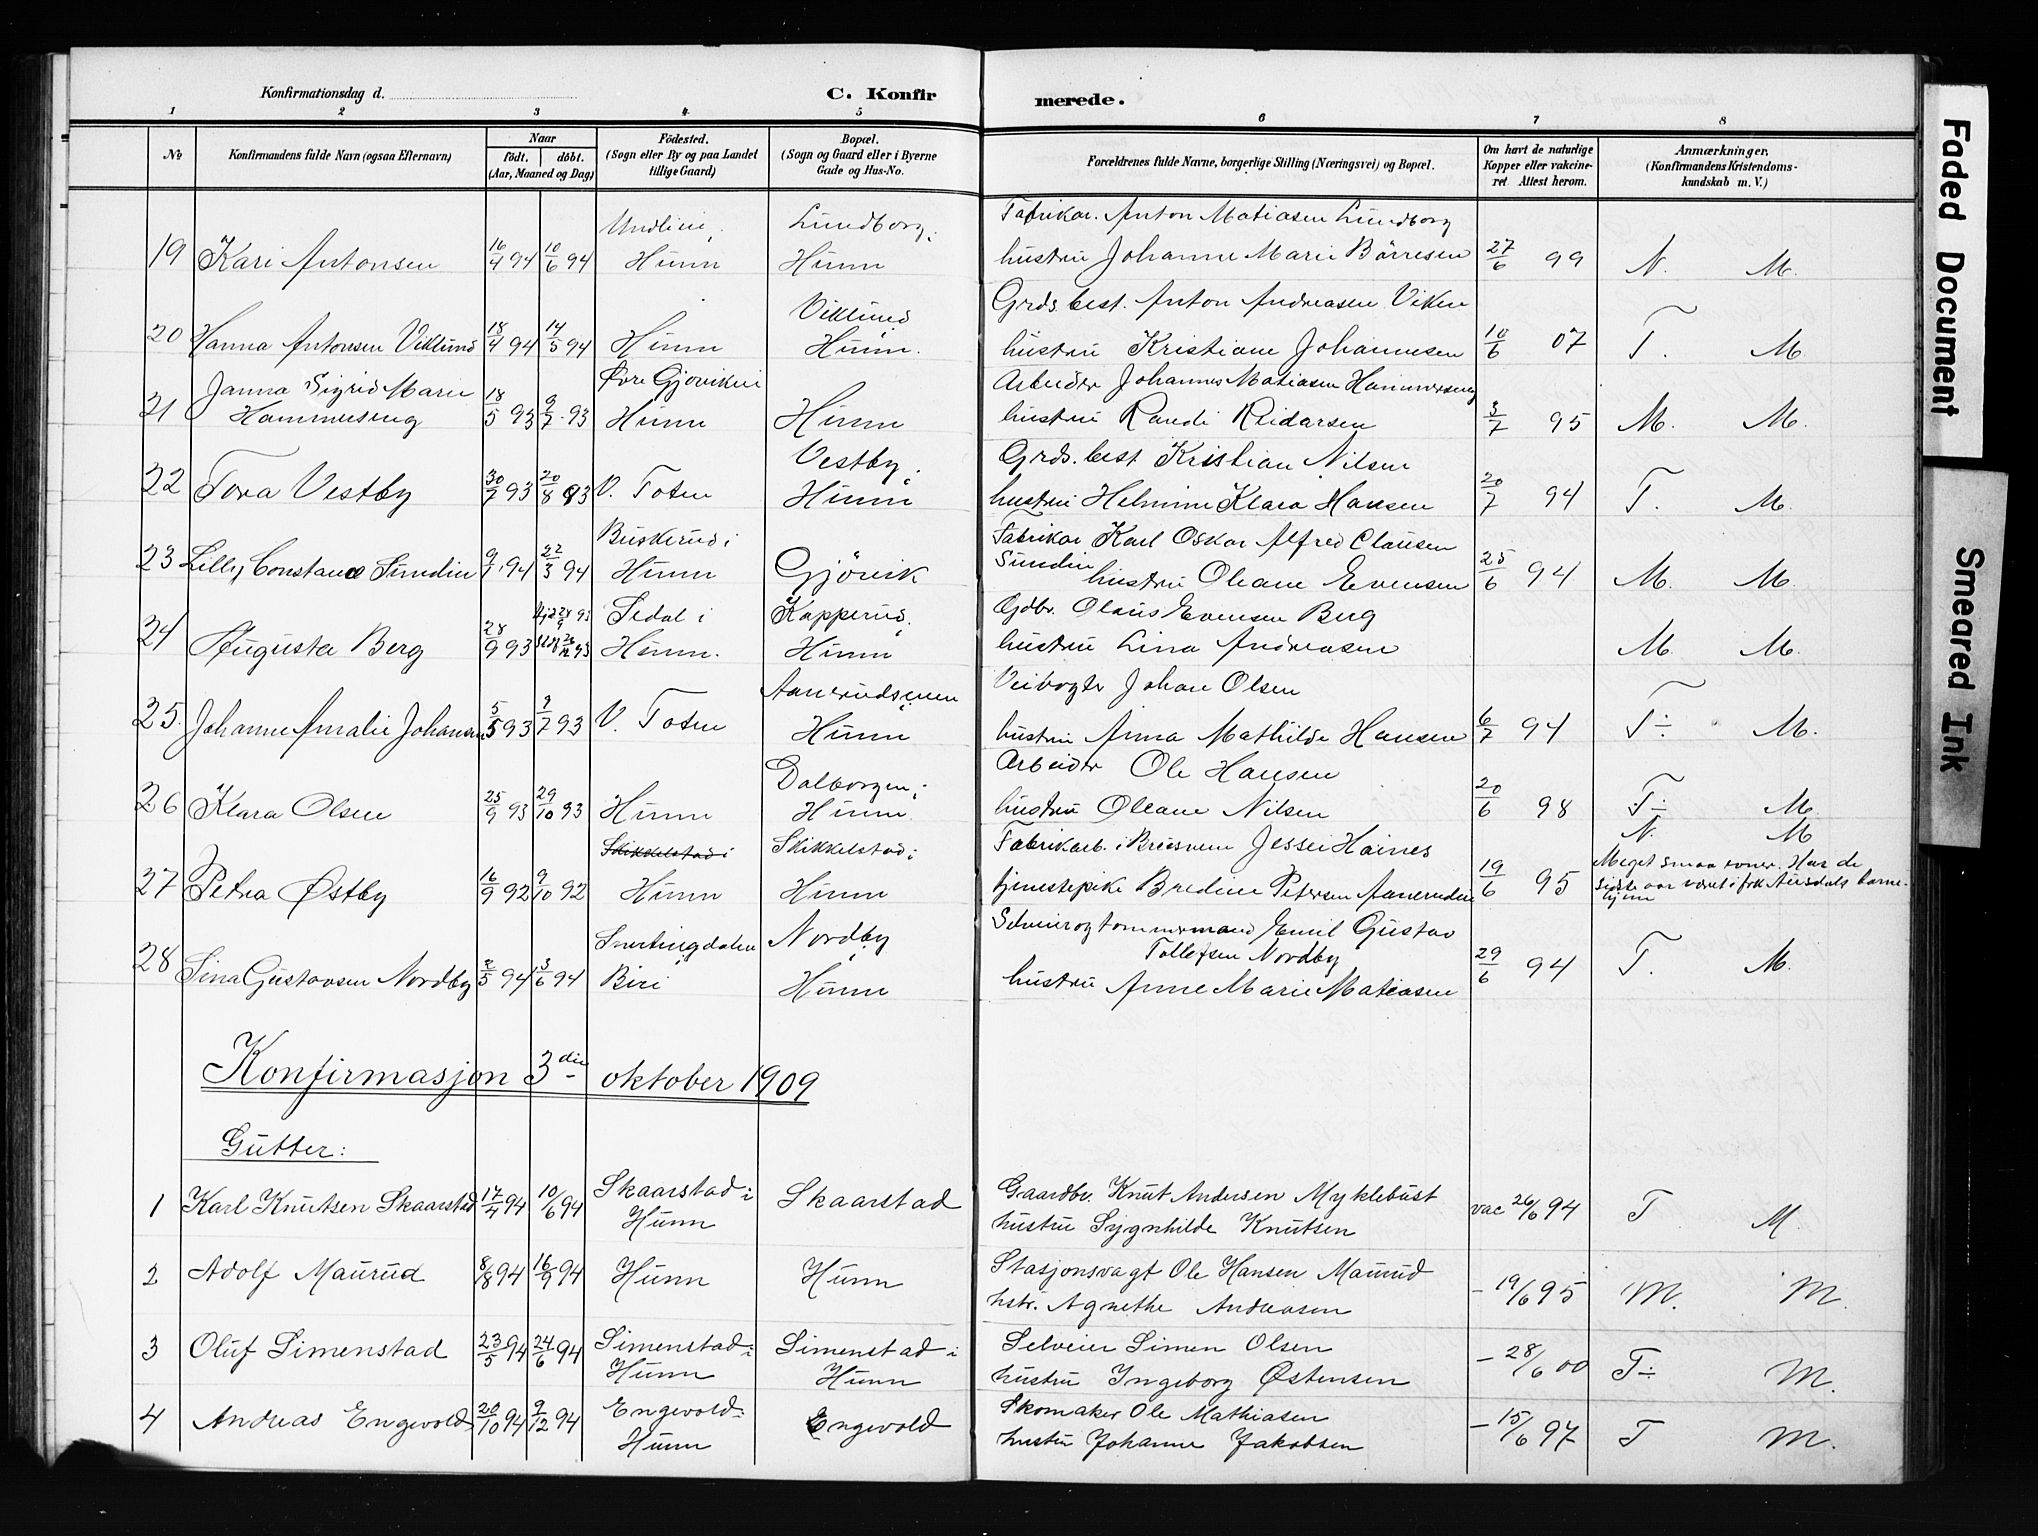 Konfirmationsdag d.
C. Konfir
merede.
1 2 3 4 5 6 7 8
No
Konfirmandens fulde Navn (ogsaa Efternavn)
Naar
født. døbt.
(Aar, Maaned og Dag)
Fødested.
(Sogn eller By og paa Landet
tillige Gaard)
Bopæl.
(Sogn og Gaard eller i Byerne
Gade og Hus-No.
Forældrenes fulde Navne, borgerlige Stilling (Næringsvei) og Bopæl.
Om havt de naturlige
Kopper eller vakcine-
ret Attest herom.
Anmærkninger,
(Konfirmandens Kristendoms-
kundskab m. V.)
Undlien i Lundborg i Fabrikar. Anton Matiasen Lundborg
19 Kari Antonsen 16/4 94 10/6 94 Hunn Hunn hustru Johanne Marie Børresen 27/6 99 N. M.
Viklund Grds. best. Anton Andreasen Viken
20 Hanna Antonsen Viklund 18/4 94 14/5 94 Hunn Hunn. hustru Kristiane Johannesen 10/6 07 T. M.
Janna Sigrid Marie Øvre Gjøvik i Arbeider Johannes Matiasen Hammerseng
21 Hammerseng 18/5 93 9/7 93 Hunn Hunn hustru Randi Reidarsen 3/7 95 M. M.
Vestby i Grds. best. Kristian Nilsen
22 Tora Vestby 30/7 93 20/8 93 V. Toten Hunn hustru Helmine Klara Hansen 20/7 94 T. M.
Buskerud i Fabrikar Karl Oskar Alfred Clausen
23 Lilly Constance Sundin 9/1 94 22/3 94 Hunn Gjövik Sundin hustru Oleane Evensen 25/6 94 M. M.
Sedal i Kapperud i Gdbr. Olaus Evensen Berg
24 Augusta Berg 28/9 93 Hunn. Hunn hustru Lina Andreasen M. M.
Aanerudseien i Veivogter Johan Olsen
25. Johanne Amalie Johansen 5/5 93 2/7 93 V. Toten Hunn hustru Anna Mathilde Hansen 6/7 94 T÷ M.
Dalborgen i Arbeider Ole Hansen
26 Klara Olsen 25/9 93 29/10 93 Hunn Hunn. hustru Oleane Nilsen 20/6 98 T÷ M.
Skikkelstad i Skikkelstad i Fabrikarb. i Jessei Haines N. M
27 Petra Østby 16/9 92 9/10 92 Hunn Hunn tjenestepike Bredine Petersen 19/6 95 Meget smaa evner. Har de
sidste aar været i frk barne-
hjem
Snertingdalen i Nordby i Selveier og tømmermand Emil Gustav
Tollefsen Nordby
28 Lina Gustavsen Nordby 2/5 94 3/6 94 Biri Hunn hustru Anne Marie Matiasen 29/6 94 T. M.
Konfirmasjon 3die oktober 1909
Gutter:
Skaarstad i Gaardbr. Knut Andersen Myklebust
1 Karl Knutsen Skaarstad 17/4 94 10/6 94 Hunn Skaarstad hustru Sygnhilde Knutsen vac 26/6 94 T M.
Stasjonsvagt Ole Hansen Maurud
2 Adolf Maurud 8/8 94 16/9 94 Hunn Hunn hstr. Agnethe Andreasen – 19/6 95 M. M.
Simenstad i Simenstad i Selveier Simen Olsen
3 Oluf Simenstad 23/5 94 24/6 94 Hunn Hunn hustru Ingeborg Østensen – 28/6 00 T÷ M.
Engevold i Skomaker Ole Mathiasen
4 Andreas Engevold 20/10 94 9/12 94 Hunn Engevold hustru Johanne Jakobsen – 15/6 97 T M.
Faded Document
Smeared Ink